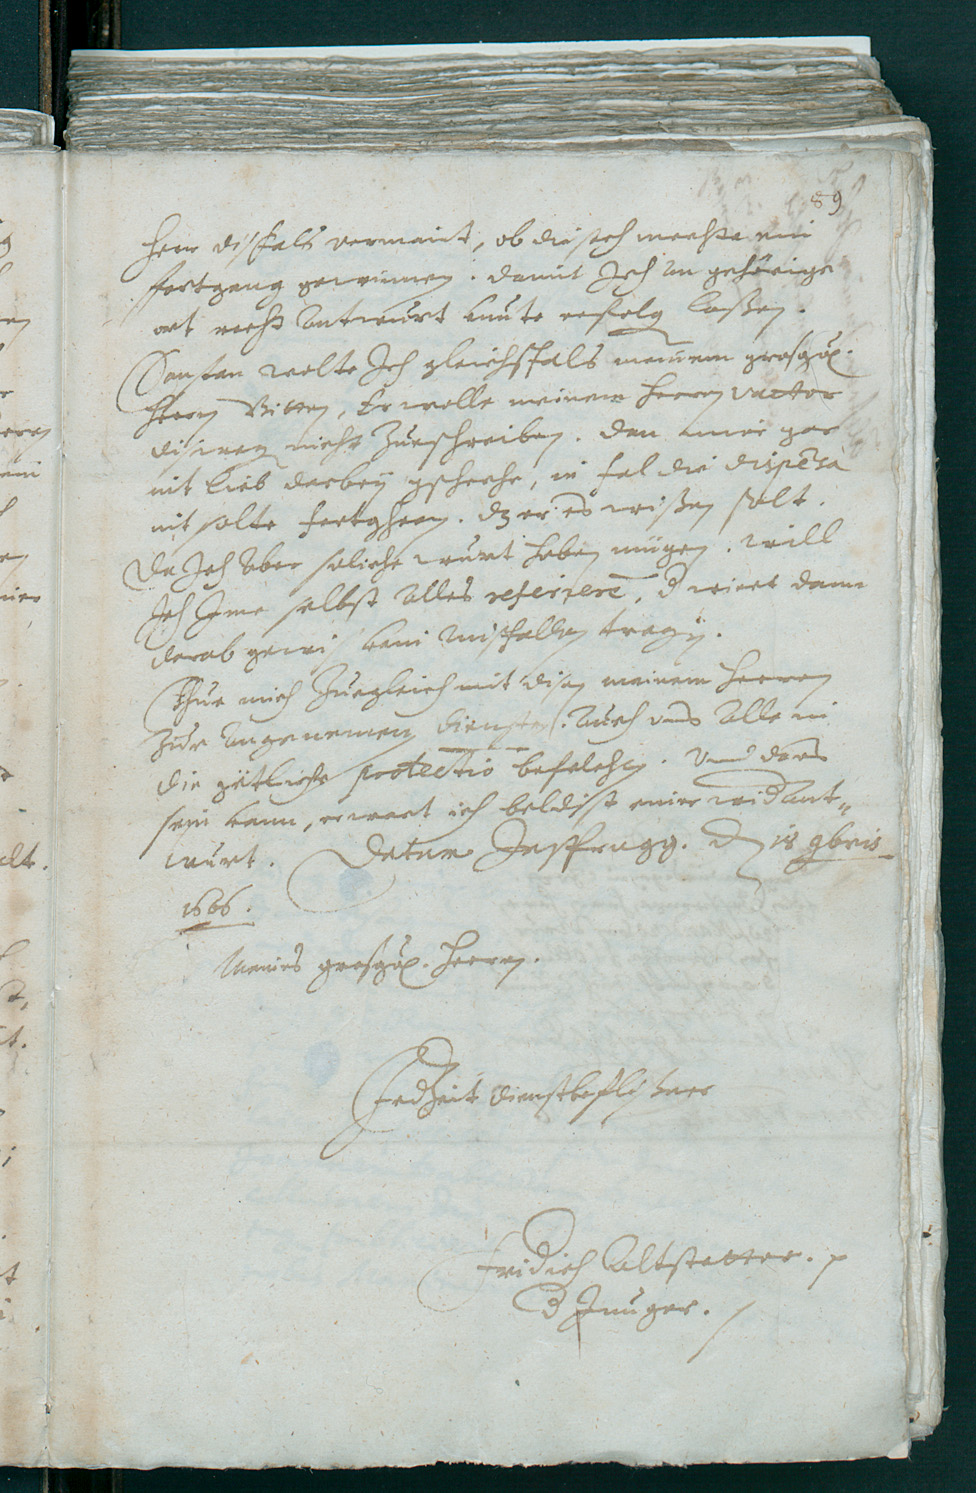 89
herr disfals vermaint, ob die sach mechte ein
fortgang gewinnen. damit Ich an gehörige
ort recht Antwurt künte erfolg laßen.
Sonsten wolte Ich gleichsfals meinem grosgü.
Herrn Bitten, Er wolle meinem Herrn vattor
nicht Zueschreiben. dan mir gar
nit lieb darbeÿ gscheche, in fal die dispensa
nit solte fortgheen. dz er es wißen solt.
Da Ich Aber soliche wurt haben mügen. will
Ich Ime selbst Alles referiere, d wirt dann
darob gewis kain Misfallen tragen.
Thue mich Zuegleich mit disen meinem Herren
Zur angenemen diensten. Auch uns Alle in
die götliche protectio befelchen. Und
sein kann, erwart ich beldist einer widAnt-
wurt. Datum Insprugg. den 18 9bris
1606.
Meines grosgü. Herrn.
JedZeit dienstbeflißner
Fridrich Altstetter.
d Junger.